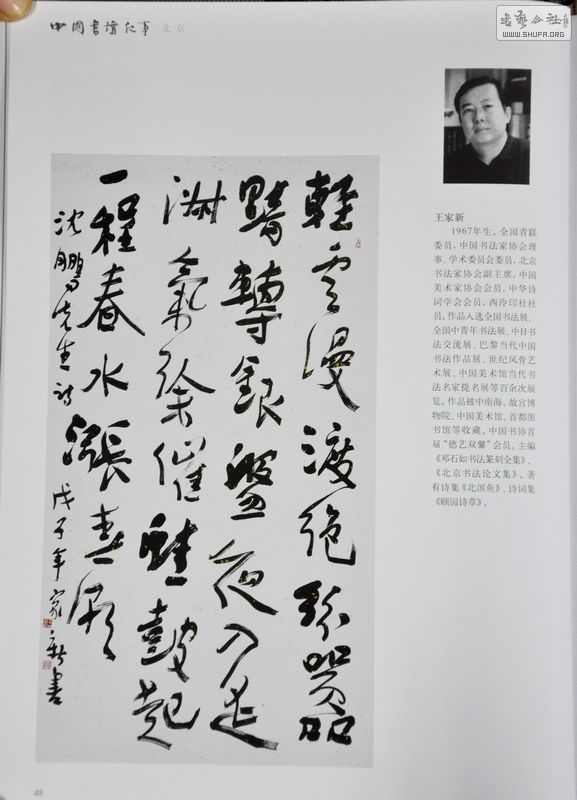 中国书坛纪事 北京
書藝公社
WWW.SHUFA.ORG
輕雲漫渡絶紛囂
轉銀盤夜入
淑氣徐催蛙鼓起
一程春水漲春潮
沈鵬先生詩 戊子年家新書
王家新
1967年生。全国青联
委员，中国书法家协会理
事、学术委员会委员，北京
书法家协会副主席，中国
美术家协会会员，中华诗
词学会会员，西泠印社社
员。作品入选全国书法展、
全国中青年书法展、中日书
法交流展、巴黎当代中国
书法作品展、世纪风骨艺
术展、中国美术馆当代书
法名家提名展等百余次展
览。作品被中南海、故宫博
物院、中国美术馆、首都图
书馆等收藏。中国书协首
届“德艺双馨”会员。主编
《邓石如书法篆刻全集》、
《北京书法论文集》。著
有诗集《北溟鱼》、诗词集
《颐园诗草》。
48